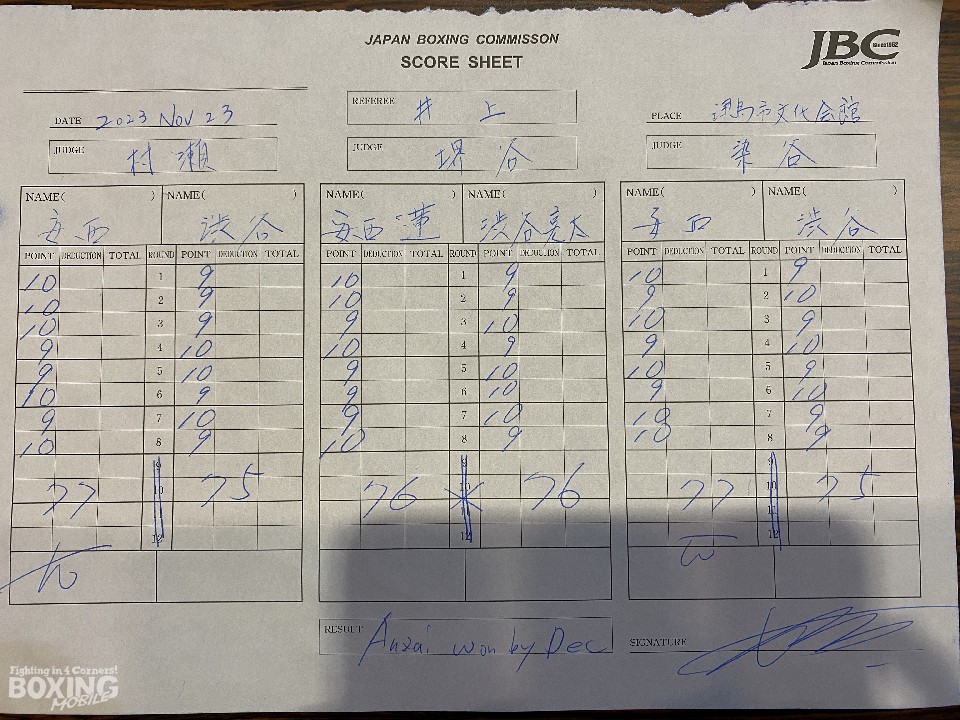 JAPAN BOXING COMMISSON
SCORE SHEET
JBC
Since1952
Japan Boxing Commission
DATE 2023 Nov 23
REFEREE 井上
PLACE 市文化会館
JUDGE 村瀬
JUDGE 堺谷
JUDGE 染谷
NAME( ) NAME( ) NAME( ) NAME( ) NAME( ) NAME( )
安西 渋谷 安西蓮 渋谷亮太 安西 渋谷
POINT DEDUCTION TOTAL ROUND POINT DEDUCTION TOTAL POINT DEDUCTION TOTAL ROUND POINT DEDUCTION TOTAL POINT DEDUCTION TOTAL ROUND POINT DEDUCTION TOTAL
10 1 9 10 1 9 10 1 9
10 2 9 10 2 9 9 2 10
10 3 9 9 3 10 10 3 9
9 4 10 10 4 9 9 4 10
9 5 10 9 5 10 10 5 9
10 6 9 9 6 10 9 6 10
9 7 10 9 7 10 10 7 9
10 8 9 10 8 9 10 8 9
9 9 9
77 10 75 76 10 76 77 10 75
11 11
12 12 12
RESULT Anzai won by Dec
SIGNATURE
Fighting in 4 Corners!
BOXING
MOBILE